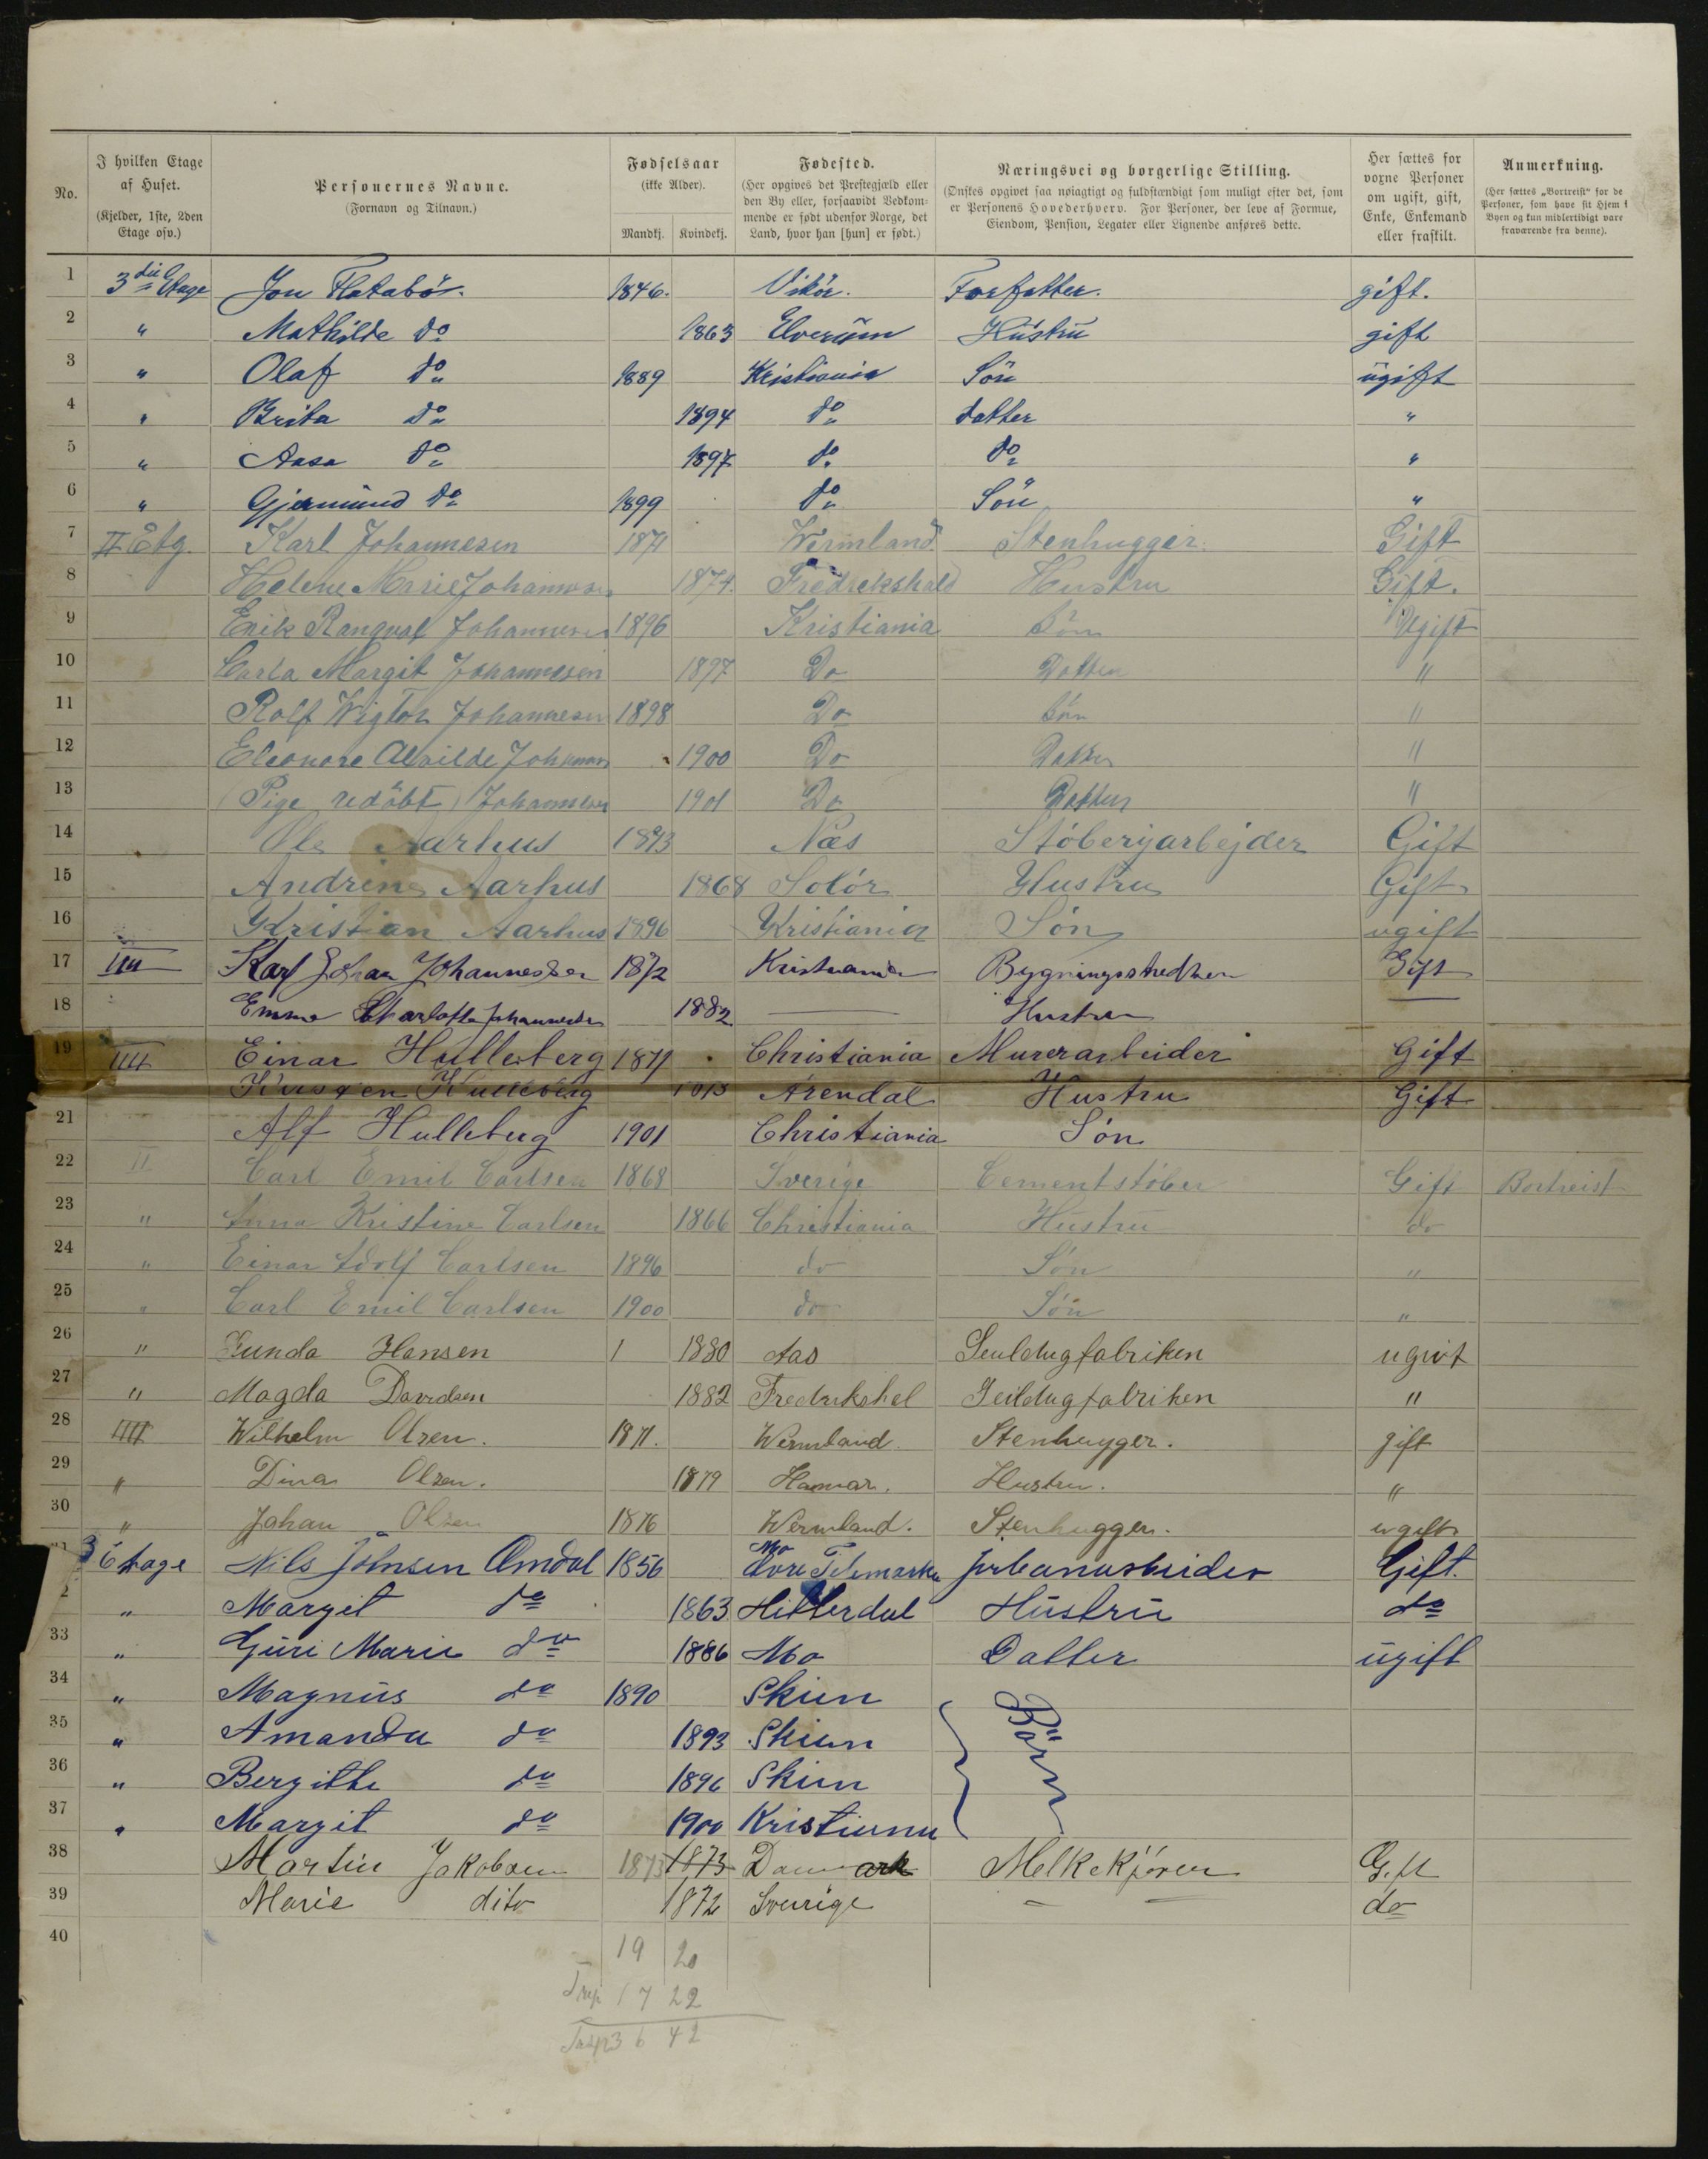 No.
I hvilken Etage af Huset. (Kjelder, 1ste, 2den Etage osv.)
Personernes Navne. (Fornavn og Tilnavn.)
Fødselsaar (ikke Alder). Mandkj. Kvindekj.
Fødested. (Her opgives det Prestegjæld eller den By eller, forsaavidt Vedkommende er født udenfor Norge, det Land, hvor han [hun] er født.)
Næringsvei og borgerlige Stilling. (Ønskes opgivet saa nøiagtigt og fuldstændigt som muligt efter det, som er Personens Hovederhverv. For Personer, der leve af Formue, Eiendom, Pension, Legater eller Lignende anføres dette.
Her sættes for voxne Personer om ugift, gift, Enke, Enkemand eller fraskilt.
Anmerkning. (Her sættes „Bortreist“ for de Personer, som have sit Hjem i Byen og kun midlertidigt vare fraværende fra denne).
1 3die Etage Jon Flatabö. 1846. Vikör. Forfatter. gift.
2 " Mathilde do 1863 Elverum Hustru gift
3 " Olaf do 1889 Kristiania Sön ugift
4 " Brita do 1894 do datter "
5 " Aasa do 1897 do do "
6 " Gjermund do 1899 do Sön "
7 II Etg. Karl Johannesen 1871 Wermland Stenhugger. Gift
8 Helene Marie Johannesen 1874. Fredrekshald Hustru Gift.
9 Erik Rangval Johannesen 1896 Kristiania Sön Ugift
10 Carla Margit Johannesen 1897 Do Datter "
11 Rolf Wigtor Johannesen 1898 Do Sön "
12 Eleonore Alvilde Johannes 1900 Do Datter "
13 (Pige udöbt) Johannesen 1901 Do Datter "
14 Ole Aarhus 1873 Næs Stöberyarbejder Gift
15 Andrine Aarhus 1868 Solör Hustru Gift
16 Kristian Aarhus 1896 Kristiania Sön ugift
17 Karl Johan Johannessen 1872 Kristiania Gift
18 Emma Charlotte Johannesen 1882 — Hustru —
19 IIII Einar Hulleberg 1871 Christiania Murerarbeider Gift
Hulleberg Arendal Hustru Gift
21 Alf Hulleberg 1901 Christiania Søn
22 II Carl Emil Carlsen 1868 Sverige Cementstöber Gift Bortreist
23 " Anna Kristine Carlsen 1866 Christiania Hustru do
24 " Einar Adolf Carlsen 1896 do Sön "
25 " Carl Emil Carlsen 1900 do Sön "
26 " Gunda Hansen 1 1880 Aas Seuldugfabriken ugivt
27 " Magda Davidsen 1882 Fredrikshal Seildugfabriken "
28 IIII Wilhelm Olsen. 1871. Wermland. Stenhugger. gift
29 " Dina Olsen. 1879 Hamar. Hustru. "
30 " Johan Olsen 1876 Wermland. Stenhugger. ugift
3 Etage Nils Johnsen Omdal 1856 Mo Gift.
2 " Margit do 1863 Hitterdal Hustru do
33 " Guri Marie do 1886 Mo Datter ugift
34 " Magnus do 1890 Skien
35 " Amanda do 1893 Skien Börn
36 " Bergithe do 1896 Skien
37 " Margit do 1900 Kristiania
38 Martin Jakobsen 1873 1873 Danmark Melkekjörer Gift
39 Marie dito 1872 Sverige — — do
40
19 20
17 22
36 42